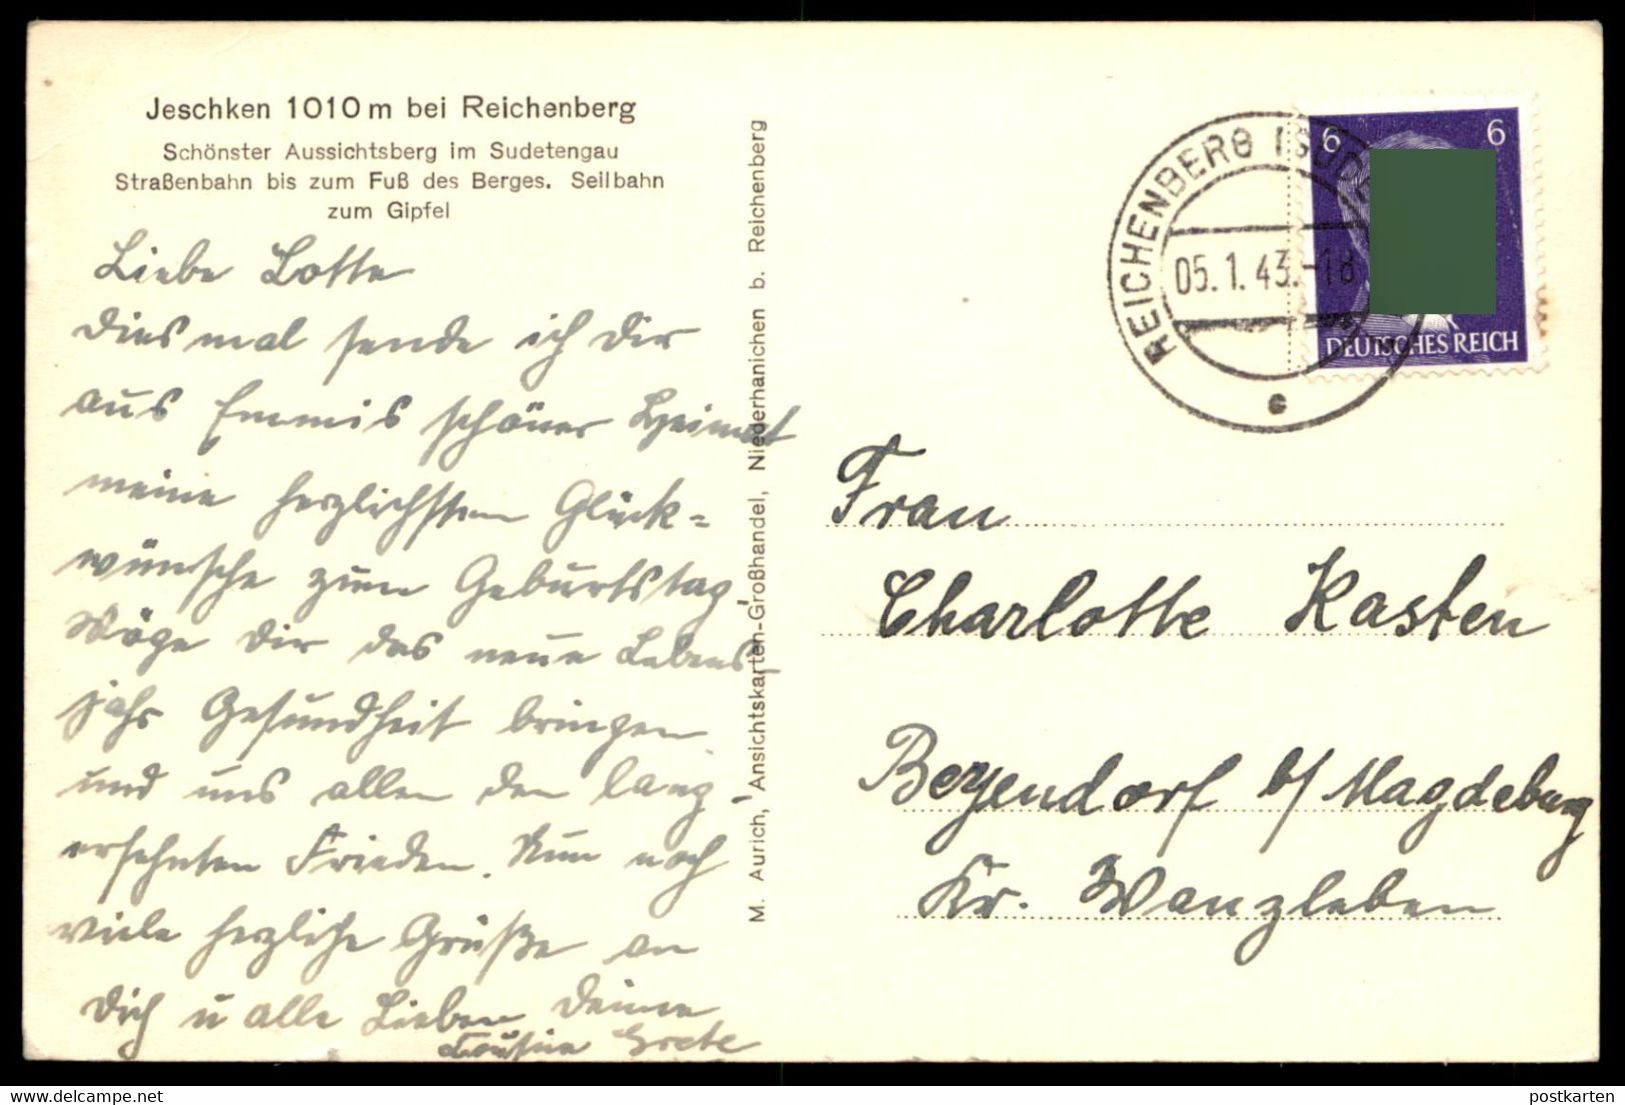 Jeschken 1010 m bei Reichenberg
Schönster Aussichtsberg im Sudetengau
Straßenbahn bis zum Fuß des Berges. Seilbahn
zum Gipfel
Liebe Lotte
Diesmal sende ich Dir
aus Emmis schöner Heimat
meine herzlichsten Glück=
wünsche zum Geburtstag.
Möge Dir das neue Lebens-
jahr Gesundheit bringen
und uns allen den lang-
ersehnten Frieden. Nun noch
viele herzliche Grüße an
Dich u alle Lieben Deine
Cousine Grete
M. Aurich, Ansichtskarten-Großhandel, Niederhanichen b. Reichenberg
REICHENBERG (SUDE
05.1.43.-18
c
6 6
DEUTSCHES REICH
Frau
Charlotte Kasten
Beyendorf b/ Magdeburg
Kr. Wanzleben
postkarten
delcampe.net